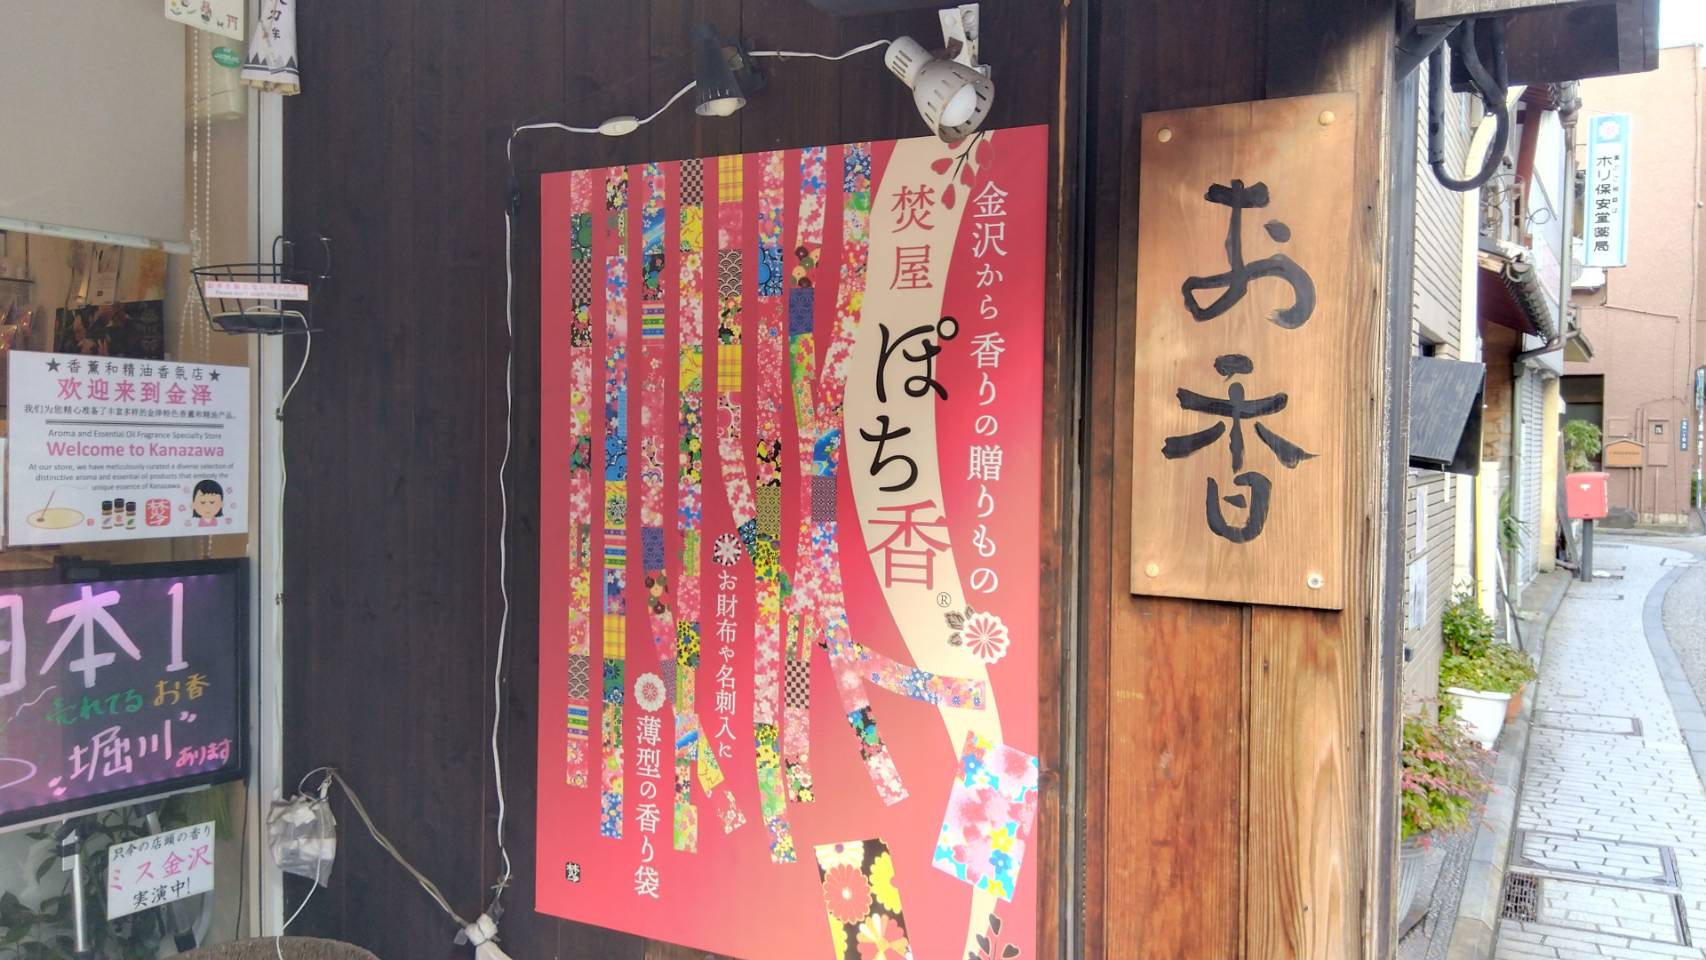 ★香薰和精油香氛店★
欢迎来到金泽
我们为您精心准备了丰富多样的金泽特色香薰和精油产品。
Aroma and Essential Oil Fragrance Specialty Store
Welcome to Kanazawa
At our store, we have meticulously curated a diverse selection of
distinctive aroma and essential oil products that embody the
unique essence of Kanazawa.
日本1
売れてる お香
堀川 あります
只今の店頭の香り
ミス金沢
実演中!
金沢から 香りの贈りもの
焚屋 ぽち香®
お財布や名刺入に
薄型の香り袋
お香
ホリ保安堂薬局